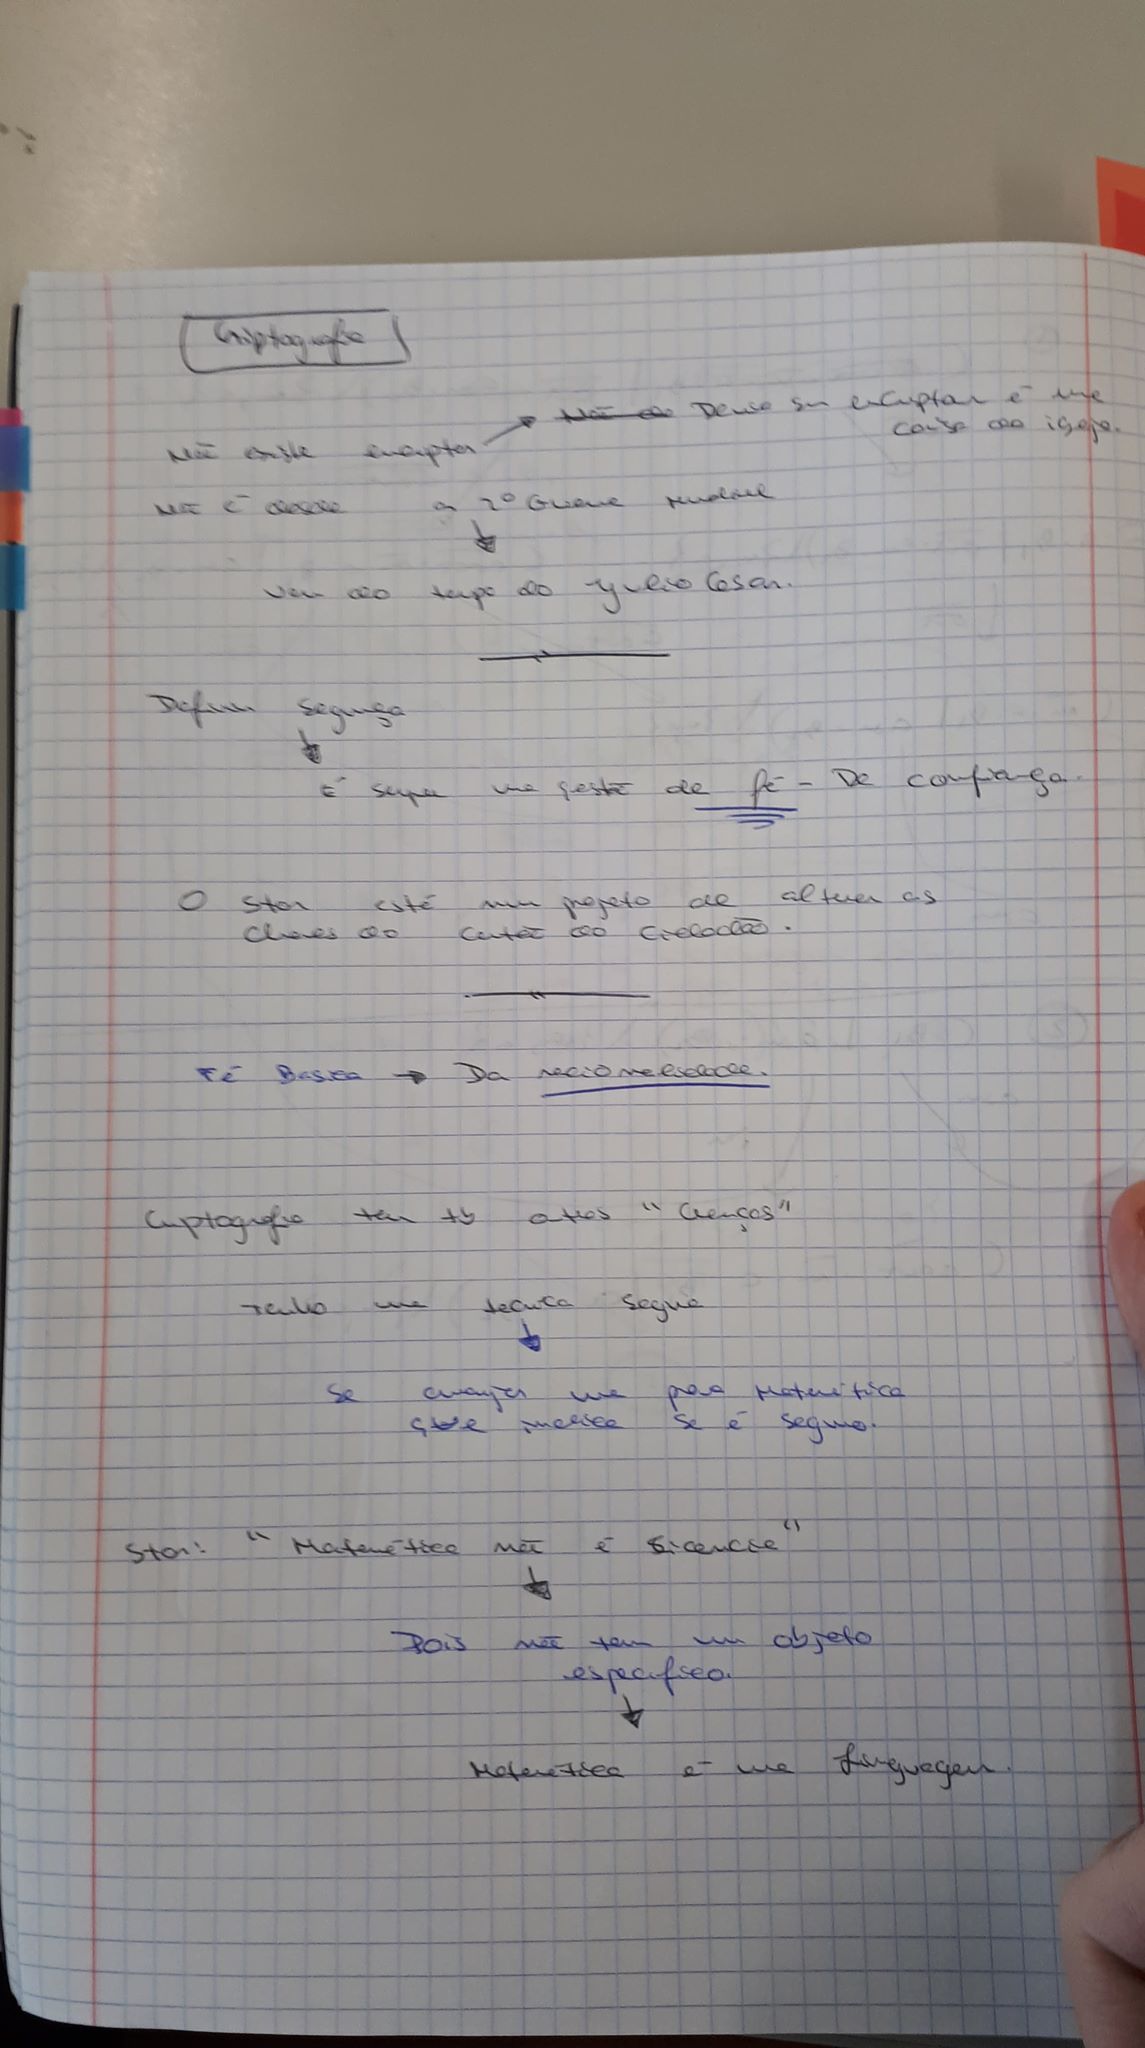 Criptografia
Não existe encriptar → Não é Deve ser encriptar é uma
coisa da igreja.
Não é desde a 2º Guerra Mundial
Vem do tempo do Júlio César.
Definir Segurança
É sempre uma questão de fé - De confiança.
O Stor está num projeto de alterar as
chaves do Cartão do Cidadão.
Fé Basica → Da racionalidade.
Criptografia tem tb outras "Crenças"
Tenho uma tecnica segura
Se arranjar uma prova Matemática
que mostra se é seguro.
Stor: "Matemática não é Siencia"
Pois não tem um objeto
especifico.
Matemática é uma linguagem.